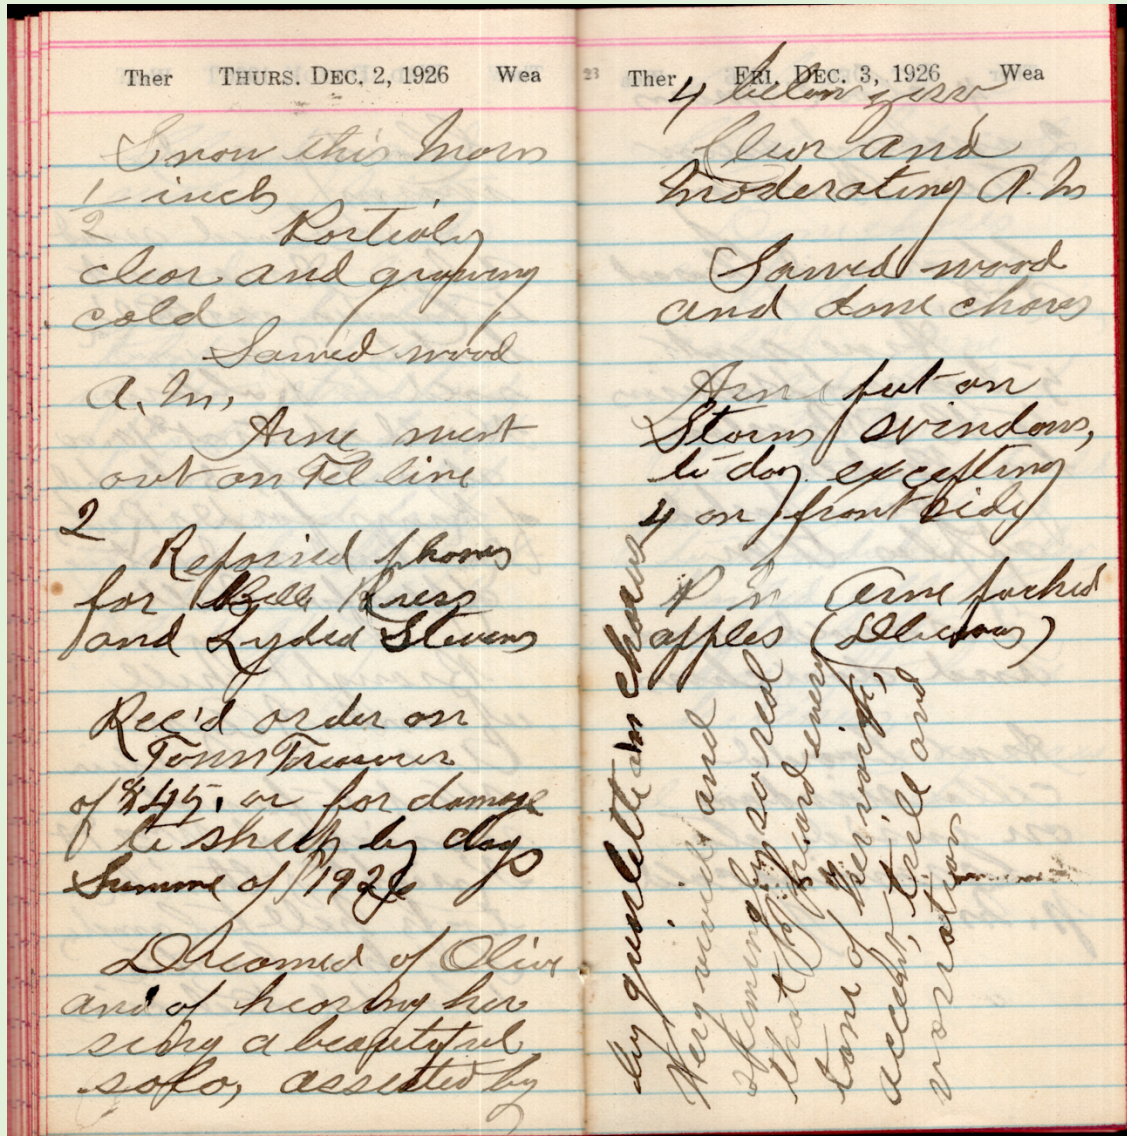 Ther THURS. DEC. 2, 1926 Wea
Snow this morn
1/2 inch
Partialy
clear and growing
cold
Sawed wood
A.M.
Arne went
out on Tel line
2
Repaired phones
for Bill Kress
and Lyded Stevens
Rec'd order on
Town Treasurer
of $45. or for damage
to sheep by dogs
Summe of 1926
Dreamed of Olive
and of hearing her
sing a beautiful
solo, assisted by
23
Ther FRI. DEC. 3, 1926 Wea
4 below zero
Clear and
moderating A.M
Sawed wood
and done chores
Arne put on
Storm windows,
to day excepting
4 on front side
P M Arne packed
apples (Dlicious)
by quintette in chorus
Very vivid and
seeming so real
that I heard every
tone of her voice,
accent, trill and
vocration